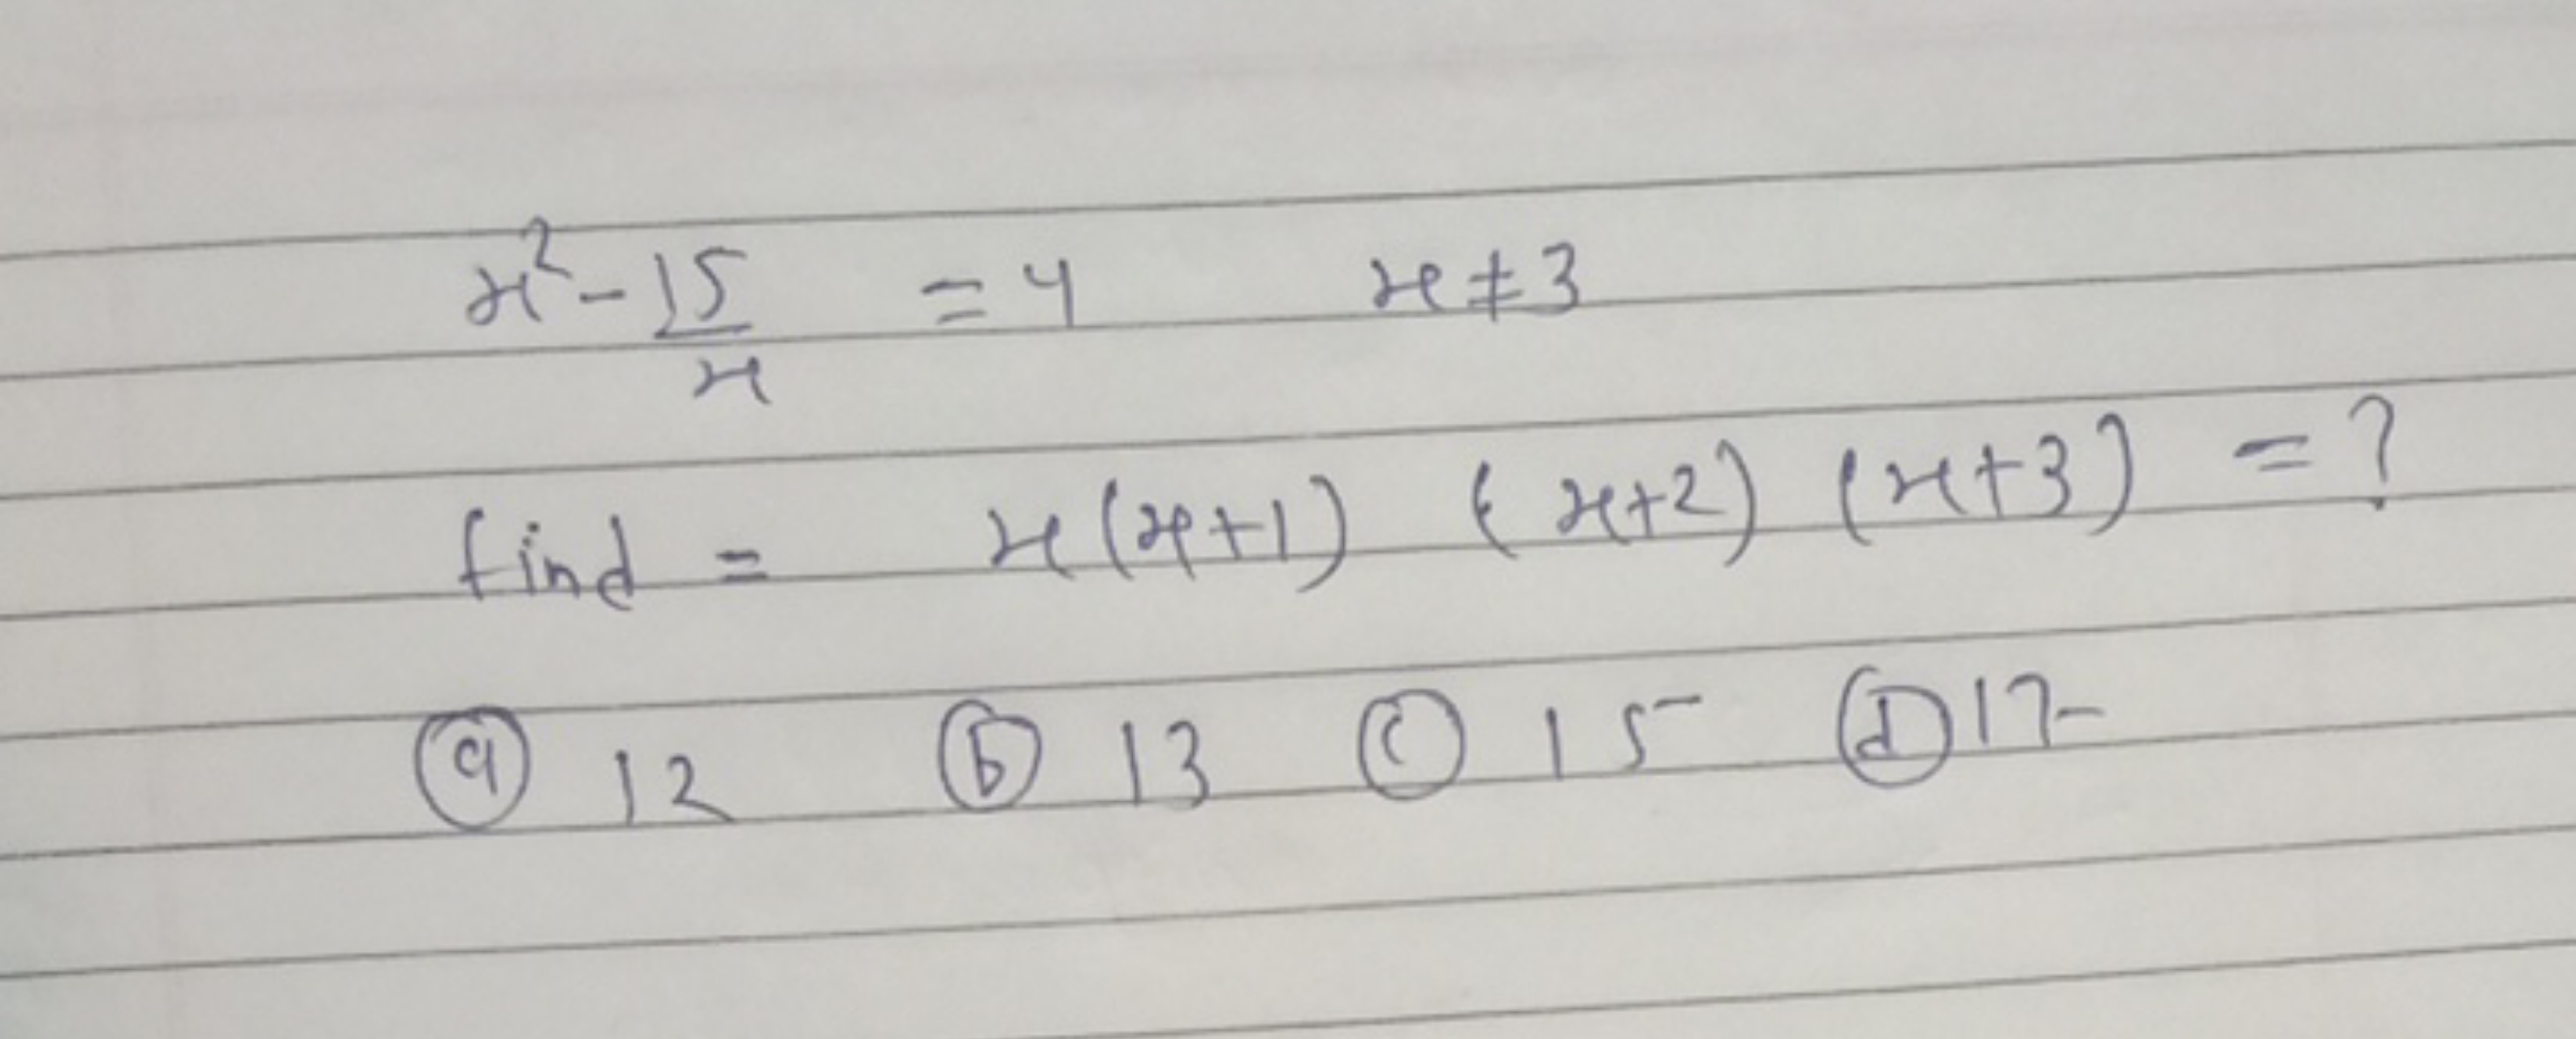 x² - 15/x = 4 x ≠ 3
find = x(x+1) (x+2) (x+3) = ?
ⓐ 12 ⓑ 13 ⓒ 15 ⓓ 17